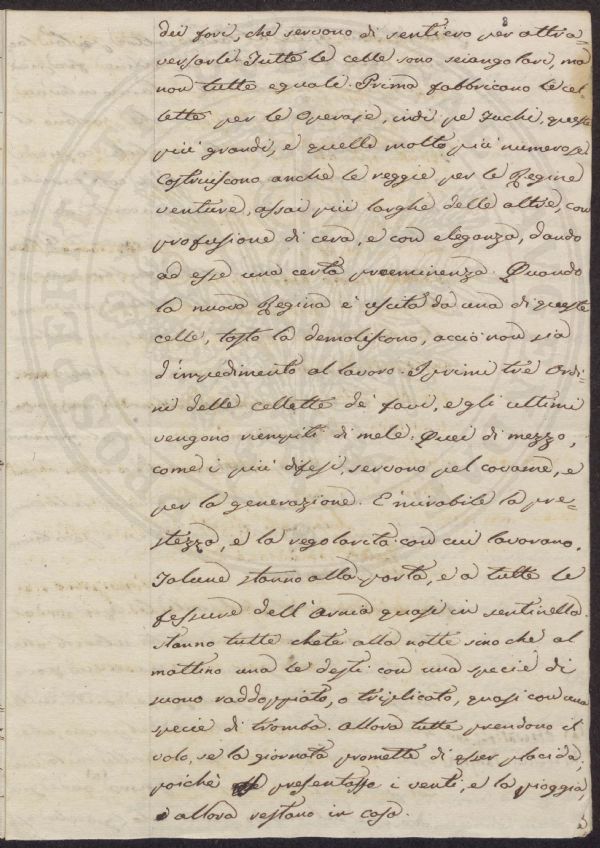 8
dei fori, che servono di sentiero per attra=
versarle. Tutte le celle sono seiangolari, ma
non tutte eguali. Prima fabbricano le cel=
lette per le Operaje, indi pe' Fuchi, queste
più grandi, e quelle molto più numerose.
Costruiscono anche le reggie per le Regine
venture, assai più larghe delle altre, con
profusione di cera, e con eleganza, dando
ad esse una certa preeminenza. Quando
la nuova Regina è uscita da una di queste
celle, tosto la demoliscono, acciò non sia
d'impedimento al lavoro. I primi trè Ordi=
ni delle cellette de' favi, e gli ultimi
vengono riempiti di mele. Quei di mezzo,
come i più difesi, servono pel covame, e
per la generazione. E' mirabile la pre=
stezza, e la regolarità con cui lavorano.
Talune stanno alla porta, e a tutte le
fessure dell'Arnia quasi in sentinella.
Stanno tutte chete alla notte sino che al
mattino una le desti con una specie di
suono raddoppiato, o triplicato, quasi con una
specie di tromba. Allora tutte prendono il
volo, se la giornata promette di esser placida,
poichè presentasse i venti, e la pioggia,
allora restano in casa.